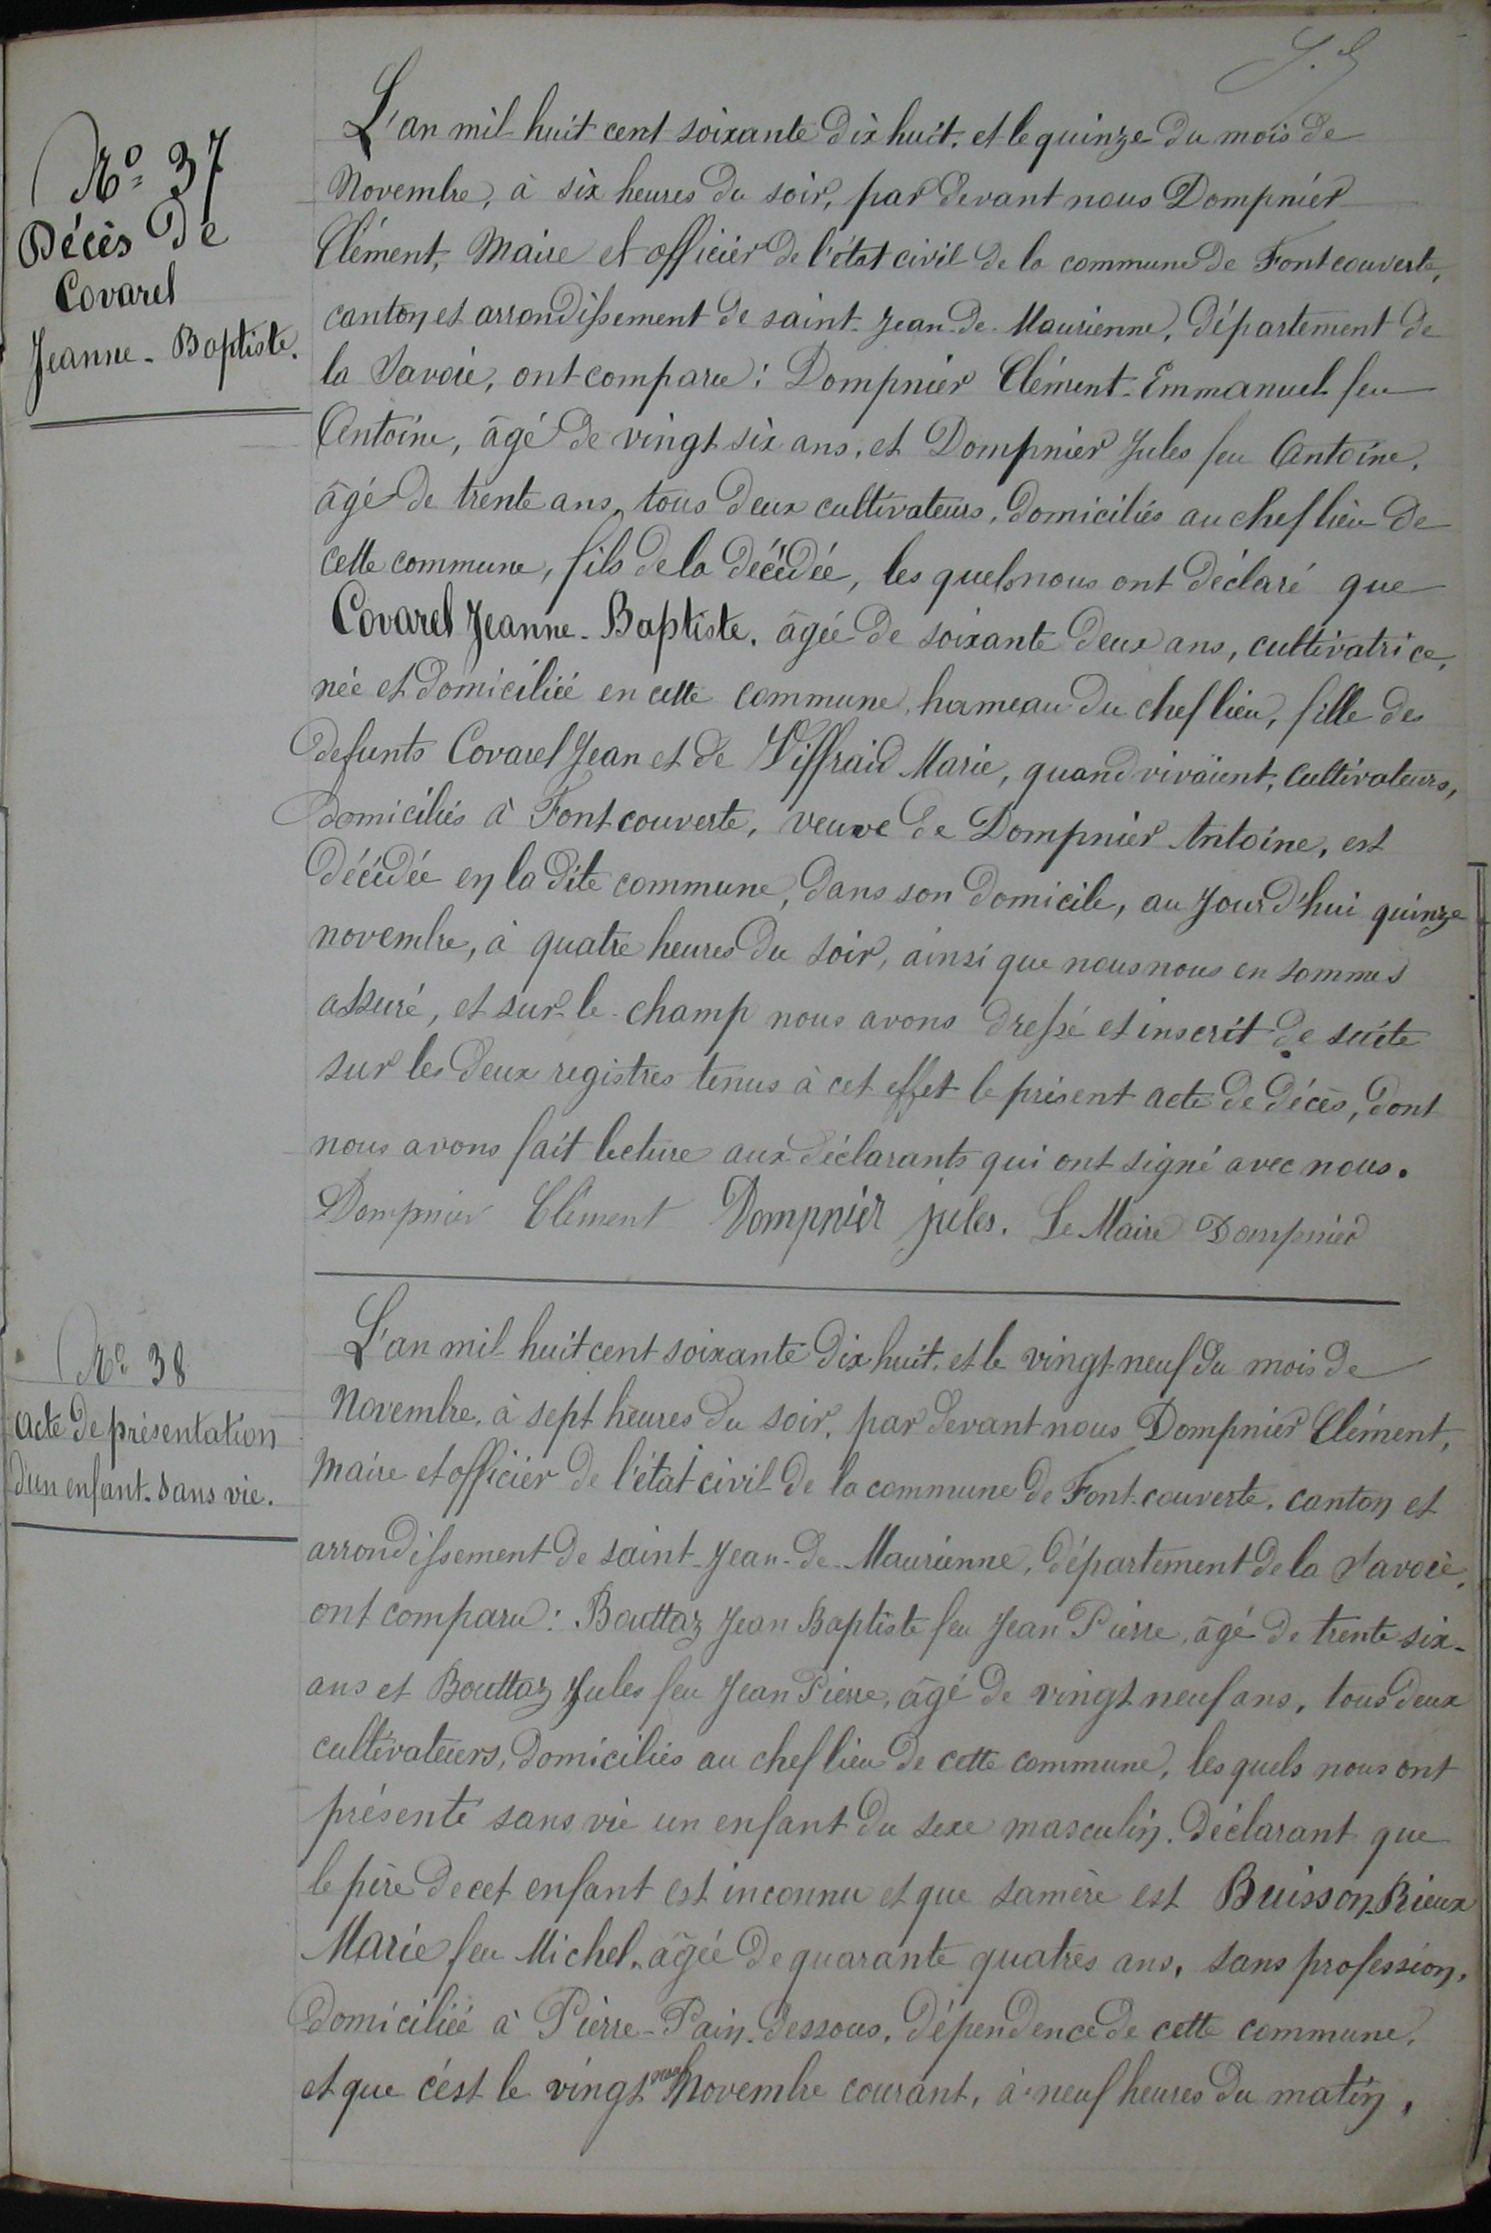 Nº 37
Décès de
Covarel
Jeanne-Baptiste.
L'an mil huit cent soixante dix huit, et le quinze du mois de
Novembre, à six heures du soir, par devant nous Dompnier
Clément, Maire et officier de l'état civil de la commune de Fontcouverte,
canton et arrondissement de saint-Jean-de-Maurienne, département de
la Savoie, ont comparu : Dompnier Clément-Emmanuel feu
Antoine, âgé de vingt six ans, et Dompnier Jules feu Antoine,
âgé de trente ans, tous deux cultivateurs, domiciliés au chef lieu de
cette commune, fils de la décédée, les quels nous ont déclaré que
Covarel Jeanne-Baptiste, âgée de soixante deux ans, cultivatrice,
née et domiciliée en cette commune, hameau du chef lieu, fille des
defunts Covarel Jean et de Viffraid Marie, quand vivaient, cultivateurs,
domiciliés à Fontcouverte, veuve de Dompnier Antoine, est
décédée en la dite commune, dans son domicile, au jourd'hui quinze
novembre, à quatre heures du soir, ainsi que nous nous en sommes
assuré, et sur-le-champ nous avons dressé et inscrit de suite
sur les deux registres tenus à cet effet le présent acte de décès, dont
nous avons fait lecture aux déclarants qui ont signé avec nous.
Dompnier Clément Dompnier jules. Le Maire Dompnier
Nº 38
Acte de présentation
d'un enfant sans vie.
L'an mil huit cent soixante dix huit, et le vingt neuf du mois de
Novembre, à sept heures du soir, par devant nous Dompnier Clément,
Maire et officier de l'état civil de la commune de Font-couverte, canton et
arrondissement de saint-Jean-de-Maurienne, département de la Savoie,
ont comparu : Bouttaz Jean Baptiste feu Jean Pierre, âgé de trente six-
ans et Bouttaz Jules feu Jean Pierre, âgé de vingt neuf ans, tous deux
cultivateurs, domiciliés au chef lieu de cette commune, les quels nous ont
présenté sans vie un enfant du sexe masculin, déclarant que
le père de cet enfant est inconnu et que sa mère est Buisson-Rieux
Marie feu Michel, âgée de quarante quatres ans, sans profession,
domiciliée à Pierre-Pain-dessous, dépendence de cette commune,
et que c'est le vingt neuf Novembre courant, à neuf heures du matin,